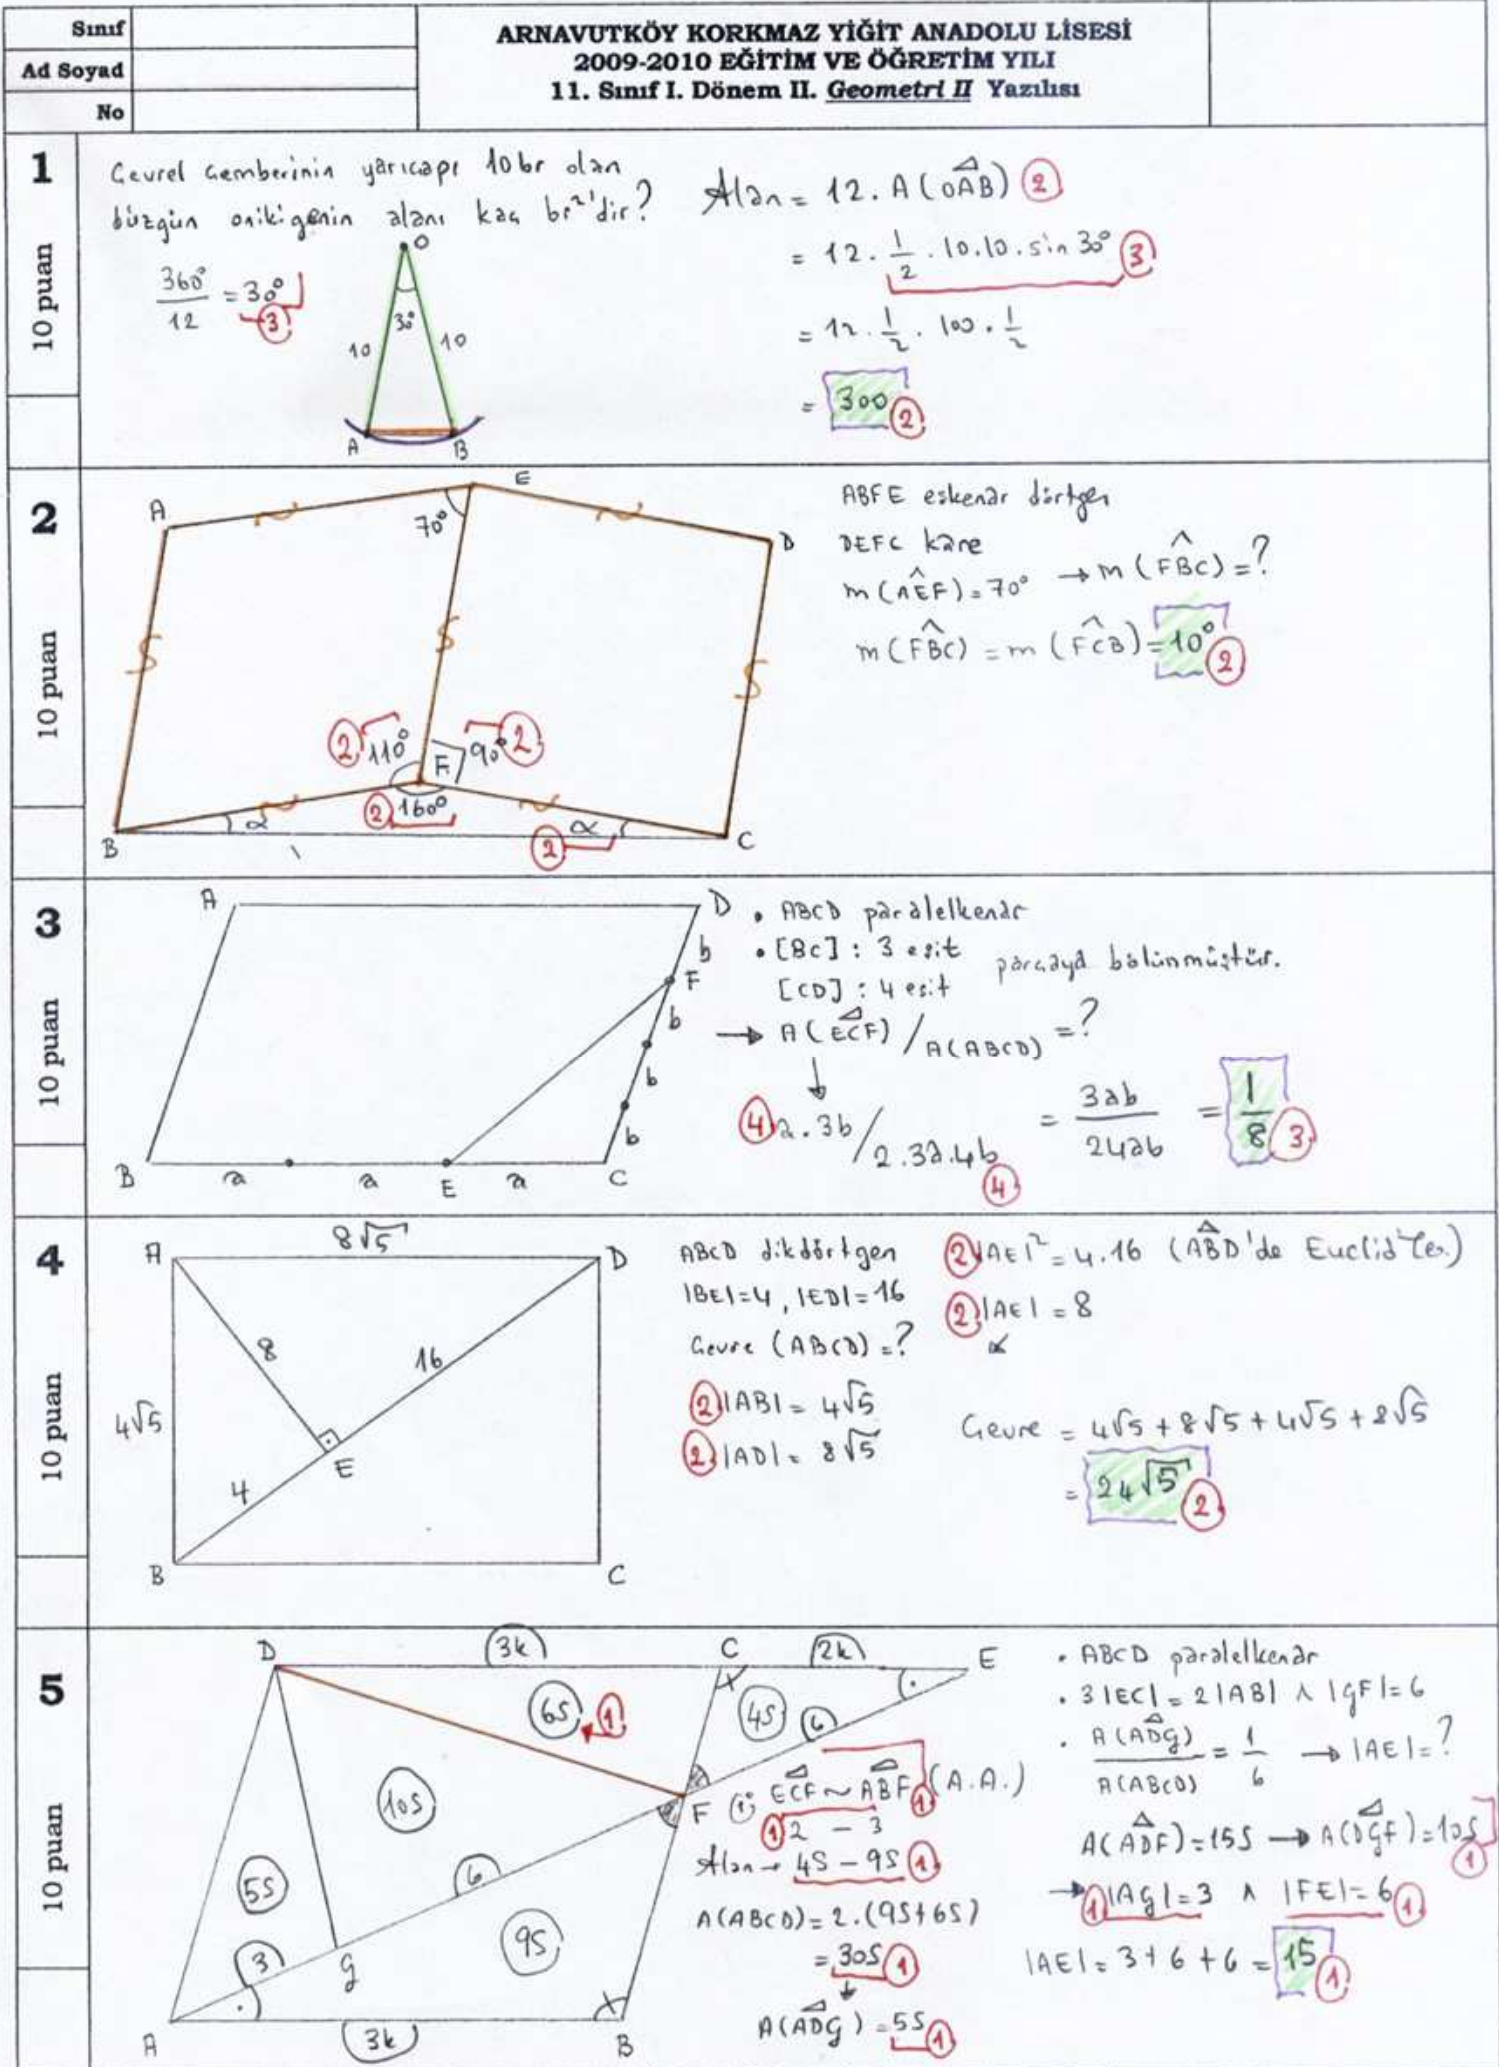 Sınıf
Ad Soyad
No
ARNAVUTKÖY KORKMAZ YİĞİT ANADOLU LİSESİ
2009-2010 EĞİTİM VE ÖĞRETİM YILI
11. Sınıf I. Dönem II. Geometri II Yazılısı
1
10 puan
Çevrel çemberinin yarıçapı 10 br olan
düzgün onikigenin alanı kaç br²'dir?
360° / 12 = 30° 3
O
30°
10 10
A B
Alan = 12. A(OAB) 2
= 12. 1/2 . 10.10. sin 30° 3
= 12. 1/2 . 100 . 1/2
= 300 2
2
10 puan
A E D
70°
2 110° F 90° 2
2 160°
α α
2
B C
ABFE eşkenar dörtgen
DEFC kare
m(AEF) = 70° → m(FBC) = ?
m(FBC) = m(FCB) = 10° 2
3
10 puan
A D
b
F
b
b
b
B a a E a C
• ABCD paralelkenar
• [BC] : 3 eşit
[CD] : 4 eşit parçaya bölünmüştür.
→ A(ECF) / A(ABCD) = ?
↓
4 a.3b / 2.3a.4b 4 = 3ab / 24ab = 1/8 3
4
10 puan
8√5
A D
8 16
4√5
E
4
B C
ABCD dikdörtgen
|BE|=4, |ED|=16
Çevre (ABCD) = ?
2 |AB| = 4√5
2 |AD| = 8√5
2 |AE|² = 4.16 (ABD'de Euclid Teo.)
2 |AE| = 8
Çevre = 4√5 + 8√5 + 4√5 + 8√5
= 24√5 2
5
10 puan
D 3k C 2k E
6S 1 4S 6
10S
F
5S 6
3 G 9S
A 3k B
i ECF ~ ABF 1 (A.A.)
1 2 - 3
Alan → 4S - 9S 1
A(ABCD) = 2.(9S+6S)
= 30S 1
↓
A(ADG) = 5S 1
• ABCD paralelkenar
• 3|EC| = 2|AB| ∧ |GF| = 6
• A(ADG) / A(ABCD) = 1/6 → |AE| = ?
A(ADF) = 15S → A(DGF) = 10S 1
→ 1 |AG| = 3 ∧ |FE| = 6 1
|AE| = 3 + 6 + 6 = 15 1